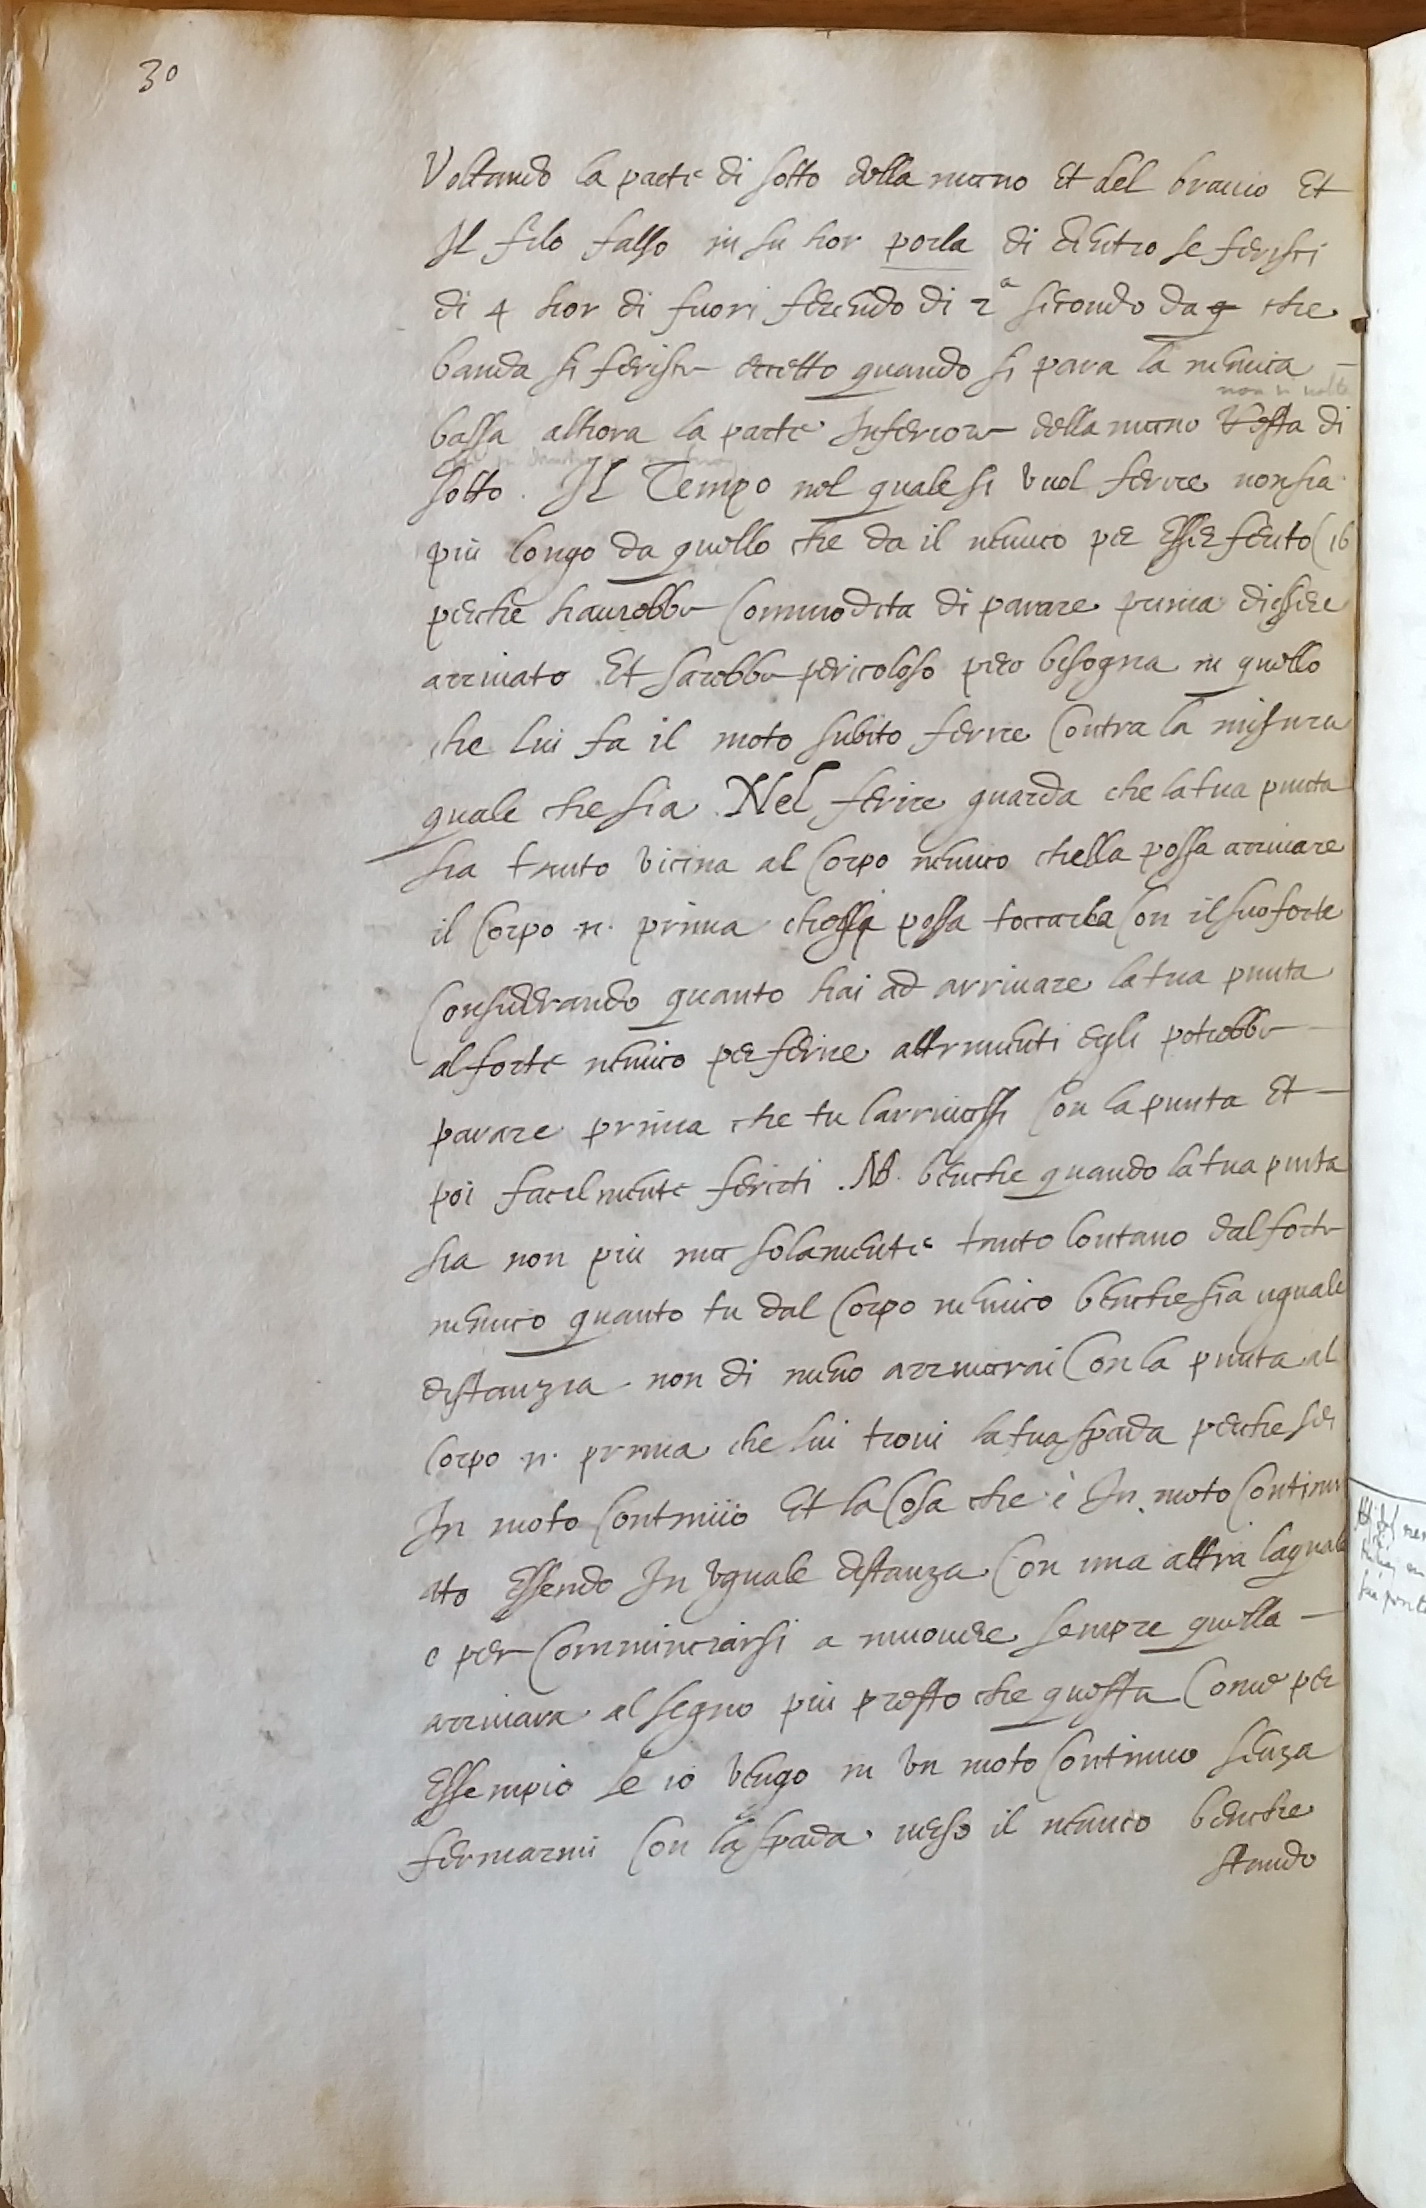 30
Voltando la parte di sotto della mano Et del braccio Et
Il filo falso in su hor porla di dentro se ferisci
di 4 hor di fuori ferendo di 2ª secondo da q che
banda si ferisce eccetto quando si para la nemica
non si volta
bassa alhora la parte Inferiore della mano Volta di
sotto. Il Tempo nel quale si vuol ferire non sia
più longo da quello che da il nemico per Esser ferito (16
perche haurebbe Commodita di parare prima dessere
arrivato Et sarebbe pericoloso pero bisogna in quello
che lui fa il moto subito ferire Contra la misura
quale che sia. Nel ferire guarda che la tua punta
sia tanto vicina al Corpo nemico chella possa arrivare
il Corpo .n. prima possa toccarla Con il suo forte
Considerando quanto hai ad arrivare la tua punta
al forte nemico per ferire altrimenti egli potrebbe
parare prima che tu larrivassi Con la punta Et
poi facilmente ferirti. NB. benche quando la tua punta
sia non più ma solamente tanto lontano dal forte
nemico quanto tu dal Corpo nemico benche sia uguale
distanzia non di meno arrivarai Con la punta al
Corpo .n. prima che lui trovi la tua spada perche sei
In moto Continuo Et la Cosa che è In moto Continu
ato Essendo In Vguale distanza Con una altra laquale
e per Comminciarsi a muovere sempre quella
arrivara al segno più presto che questa Come per
Essempio se io vengo in vn moto Continuo senza
fermarmi Con la spada verso il nemico benche
stando